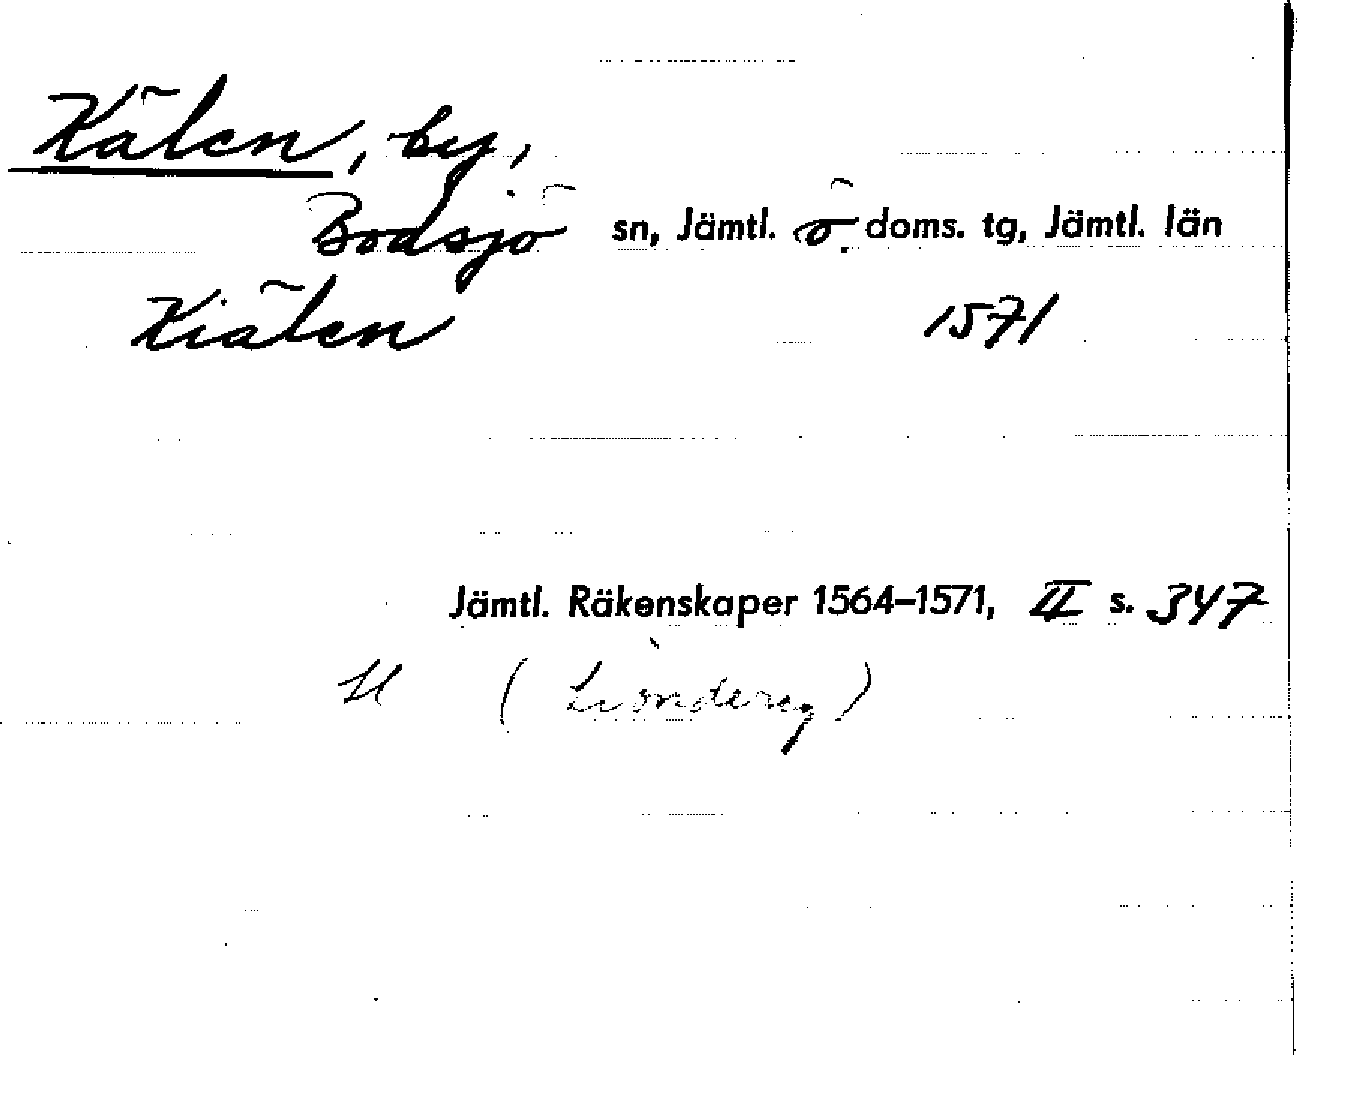 Kälen, by,
Bodsjö sn, Jämtl. ö. doms. tg, Jämtl. län
Kiälen 1571
Jämtl. Räkenskaper 1564–1571, II s. 347